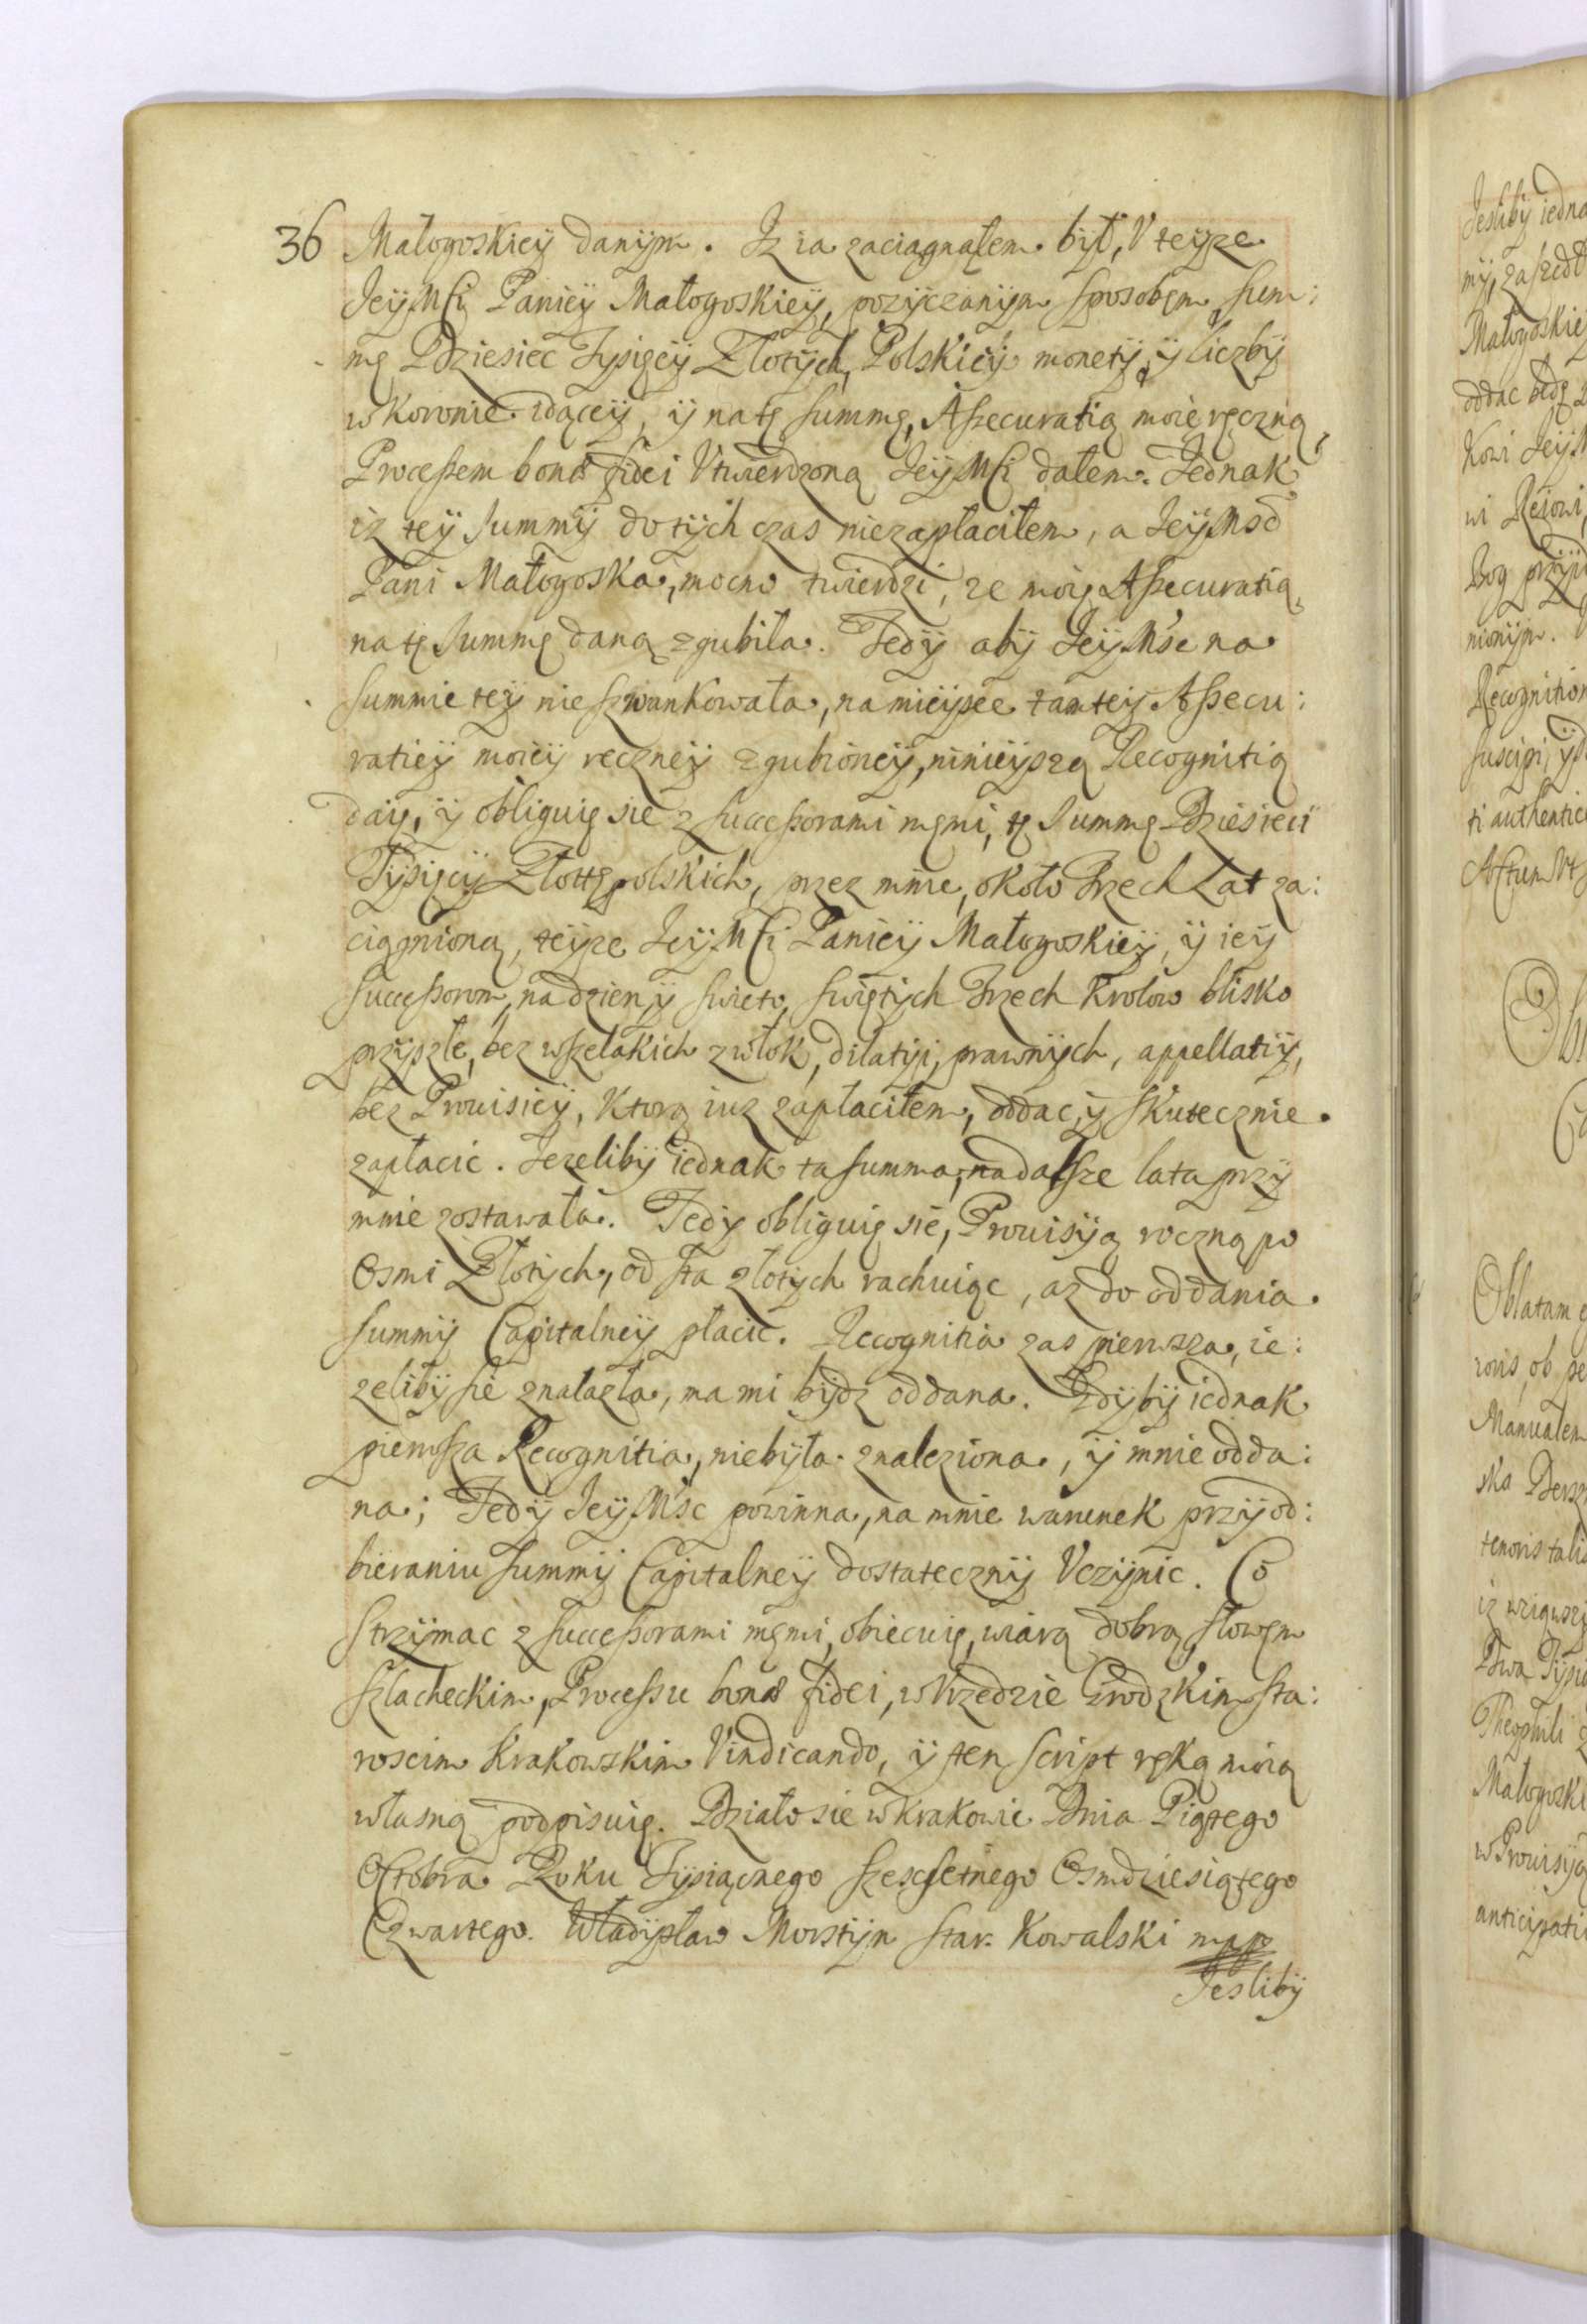 36 Małogoskieÿ danÿm. Iz ia zaciągnąłem bÿł, V teÿze
JeÿMści Panieÿ Małogoskieÿ, pozÿczanÿm sposobęm, sum:
mę Dziesiec Tysięcÿ Złotÿch, Polskieÿ monetÿ, ÿ liczbÿ
w koronie idąceÿ, ÿ na tę summę, Assecuratią moię ręczną,
Processem bonæ fidei Vtwierdzoną JeÿMści dałem. Jednak
iz teÿ summÿ do tÿch czas niezapłaciłem, a JeÿMsc
Pani Małogoska, mocno twierdzi, ze moię Assecuratią,
na tę summę daną zgubiła. Tedÿ abÿ JeÿMsc na
summie teÿ nie szwankowała, na mieÿsce tamteÿ Assecu:
ratieÿ moieÿ reczneÿ zgubioneÿ, ninieÿszą Recognitią
daię, ÿ obliguię sie z successorami męmi, tę summę Dziesieci
Tÿsięcÿ Złottÿ polskich, przez mnie, około Trzech Lat za:
ciągniona, teÿze JeÿMści Panieÿ Małogoskieÿ, ÿ ieÿ
successorom, na dzien ÿ swieto, swiętÿch Trzech Krolow blisko
przÿszłe, bez wszelakich zwłok, dilatÿi, prawnÿch, appellatiÿ,
bez Prouisieÿ, ktorą iuz zapłaciłem, oddac, ÿ skutecznie
zapłacic. Jezelibÿ iednak ta summa, na dalsze lata przÿ
mnie zostawała. Tedÿ obliguię sie, Prouisÿą roczną po
Osmi Złotÿch, od sta złotÿch rachuiąc, az do oddania
summÿ Capitalneÿ płacic. Recognitia zas pierwsza, ie:
zelibÿ sie znalazła, ma mi bÿdz oddana. Gdÿbÿ iednak
pierwsza Recognitia, niebÿła znaleziona, ÿ mnie odda:
na; Tedÿ JeÿMsc powinna, na mnie warunek przÿ od:
bieraniu summÿ Capitalneÿ dostatecznÿ Vczÿnic. Co
strzÿmac z successorami męmi, obiecuię, wiarą dobrą, słowęm
szlacheckim, Processu bonæ fidei, w Vrzedzie Grodzkim sta:
roscim Krakowskim Vindicando, ÿ ten script ręką moią
własną podpisuię. Działo sie w Krakowie Dnia Piątego
Octobra Roku Tÿsiącnego szescsetnego Osmdziesiątego
Czwartego. Władÿsław Morstÿn star. Kowalski mpp
Jeslibÿ